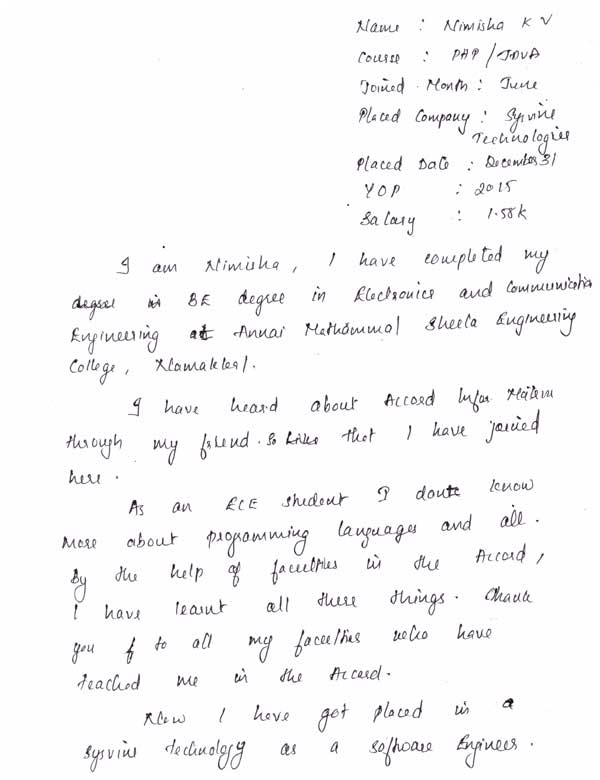 Name : Nimisha K V
Course : PHP / JAVA
Joined Month : June
Placed Company : Sysvine
Technologies
Placed Date : December 31
YOP : 2015
Salary : 1.58k
I am Nimisha, I have completed my
degree in BE degree in Electronics and Communication
Engineering at Annai Mathammal Sheela Engineering
College, Namakkal.
I have heard about Accord Info Matrix
through my friend. So that I have joined
here.
As an ECE student I don't know
more about programming languages and all.
By the help of faculties in the Accord,
I have learnt all these things. Thank
you to all my faculties who have
teached me in the Accord.
Now I have got placed in a
Sysvine Technology as a Software Engineer.